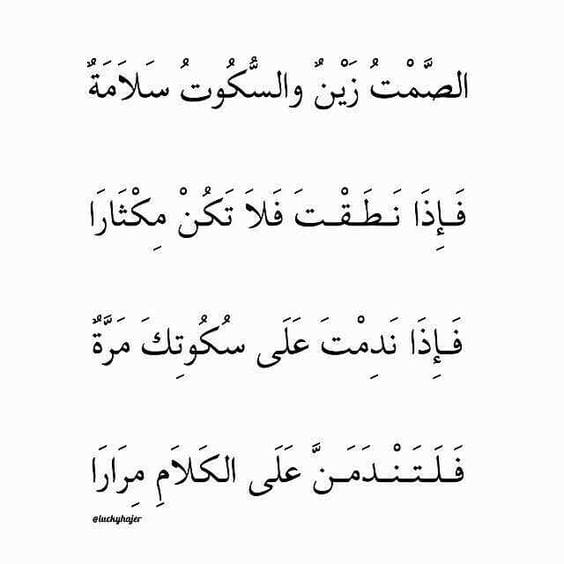 الصَّمْتُ زَيْنٌ والسُّكُوتُ سَلاَمَةٌ
فَإِذَا نَـطَـقْـتَ فَلاَ تَكُنْ مِكْثَارَا
فَـإِذَا نَدِمْتَ عَلَى سُكُوتِكَ مَرَّةٌ
فَـلَـتَـنْـدَمَـنَّ عَلَى الكَلاَمِ مِرَارَا
@luckyhajer